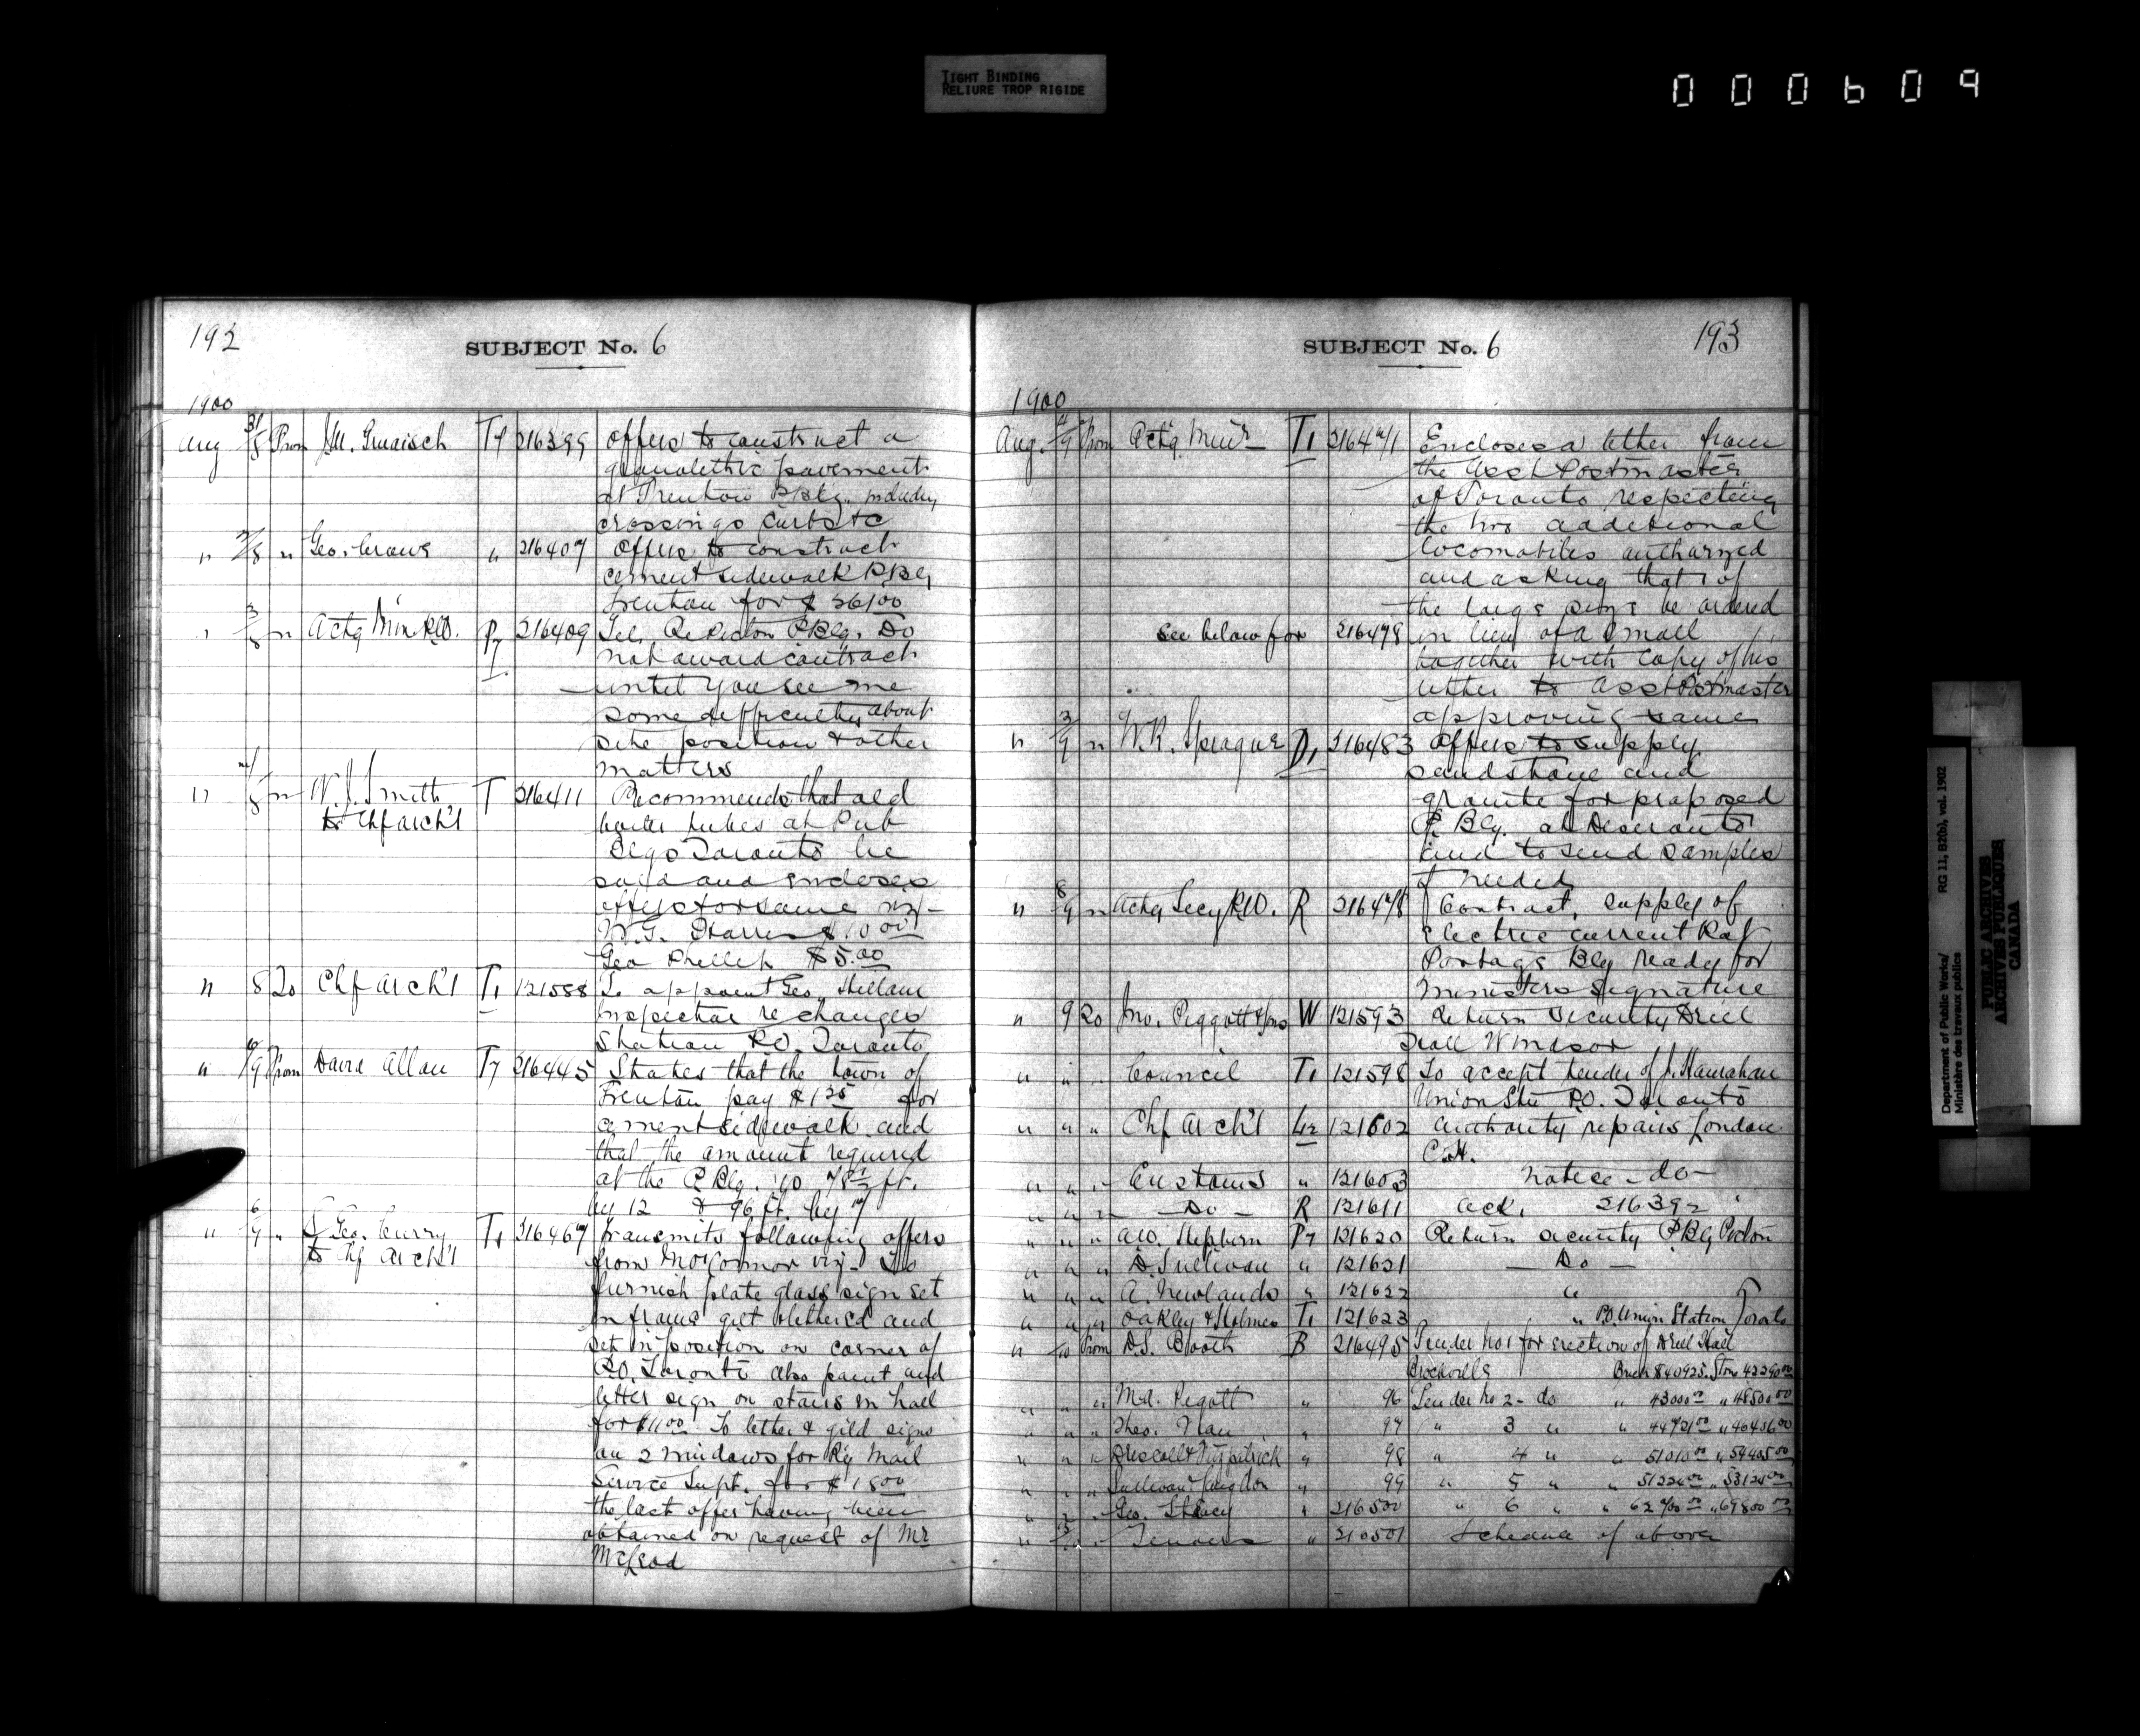 TIGHT BINDING
RELIURE TROP RIGIDE
000609
192
SUBJECT No. 6
1900
Aug 31/8 From 216399 Offers to construct a
granolithic pavement
at Trenton P.Blg. including
crossings curbs &c
" " Geo. " 216407 Offers to construct
cement sidewalk P.Blg
Trenton for $ 261.00
" " Actg Min P.W. P7 216409 Tel. Re Picton P.Blg. Do
not award contract
until you see me
some difficulty about
site position & other
matters
" " W.J. Smith T 216411 Recommends that old
to Chf Arch't boiler tubes at Pub
Blgs Toronto be
sold and encloses
offers for same viz-
W.G. Harris $10.00
Geo $5.00
" 8 To Chf Arch't T1 121588 To appoint Geo.
inspector re changes
Station P.O. Toronto
" /9 From David Allan T7 216445 States that the town of
Trenton pay $1.25 for
cement sidewalk and
that the amount required
at the P.Blg. is 78½ ft.
by 12 & 96 ft. by 7
" 6/9 " S. Geo. Curry T1 216467 Transmits following offers
to Chf Arch't from McConnor viz- To
furnish plate glass sign set
in frame gilt & lettered and
set in position on corner of
P.O. Toronto also paint and
letter sign on stairs in hall
for $11.00 To letter & gild signs
on 2 windows for Ry Mail
Service Supt. for $18.00
the last offer having been
obtained on request of Mr
McLeod
SUBJECT No. 6
193
1900
Aug. /9 From Actg Min'r T1 216471 Encloses a letter from
the Asst Postmaster
of Toronto respecting
the two additional
locomobiles authorized
and asking that 1 of
the large size be ordered
See below for 216478 in lieu of a small
together with copy of his
letter to Asst Postmaster
approving same
" 3/9 " W.R. Sprague D1 216483 Offers to supply
sandstone and
granite for proposed
P. Blg. at Deseronto
and to send samples
if needed
" 8/9 " Actg Secy P.W. R 216478 Contract, supply of
electric current Rat
Portage Blg ready for
Ministers Signature
" 9 To Jno. Piggott & Sons W 121593 Return Security Drill
Hall Windsor
" " " Council T1 121598 To accept tender of J. Hanrahan
Union Stn P.O. Toronto
" " " Chf Arch't L2 121602 Authority repairs London
C.H.
" " " Customs " 121603 Notice - do -
" " " - Do - R 121611 Ack. 216392
" " " A.W. Hepburn P7 121620 Return security P.Blg Picton
" " " D. Sullivan " 121621 - Do -
" " " A. Newlands " 121622 "
" " " Oakley & Holmes T1 121623 " P.O. Union Station Toronto
" 10 From D.S. Booth B 216495 Tender No 1 for erection of Drill Hall
Brockville Brick $40925. Stone 42290.00
" " " Md. Pigott " 96 Tender No 2 - do " 43000.00 " 48500.00
" " " Thos. " 97 " 3 " " 44721.00 " 46486.00
" " " Driscoll & Fitzpatrick " 98 " 4 " " 51010.00 " 54405.00
" " " Sullivan & Langdon " 99 " 5 " " 51224.00 " 53124.00
" " " Geo. Stacey " 216500 " 6 " " 62700.00 " 69800.00
" " " Tenders " 216501 Schedule of above
Department of Public Works/ RG 11, B2(b), vol. 1902
Ministère des travaux publics
PUBLIC ARCHIVES
ARCHIVES PUBLIQUES
CANADA